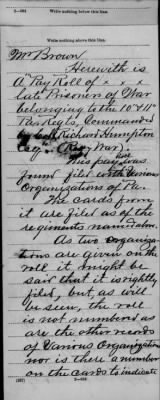 3—684
Write nothing below this line.
Write nothing above this line.
Mr Brown
Herewith is
A Pay Roll of . . .
late Prisoner of War
belonging to the 10 & 11"
Pa. Regts, Commanded
by Col. Richard Humpton
Esq. (Rev. War).
This pay was
found filed with Various
Organizations of Pa.
The cards from
it are filed as of the
regiments named
As two organiza-
tions are given on the
roll it might be
said that it is rightly
filed, but as will
be seen, the roll
is not numbered as
are the other records
of Various Organization
nor is there a number
on the cards to indicate